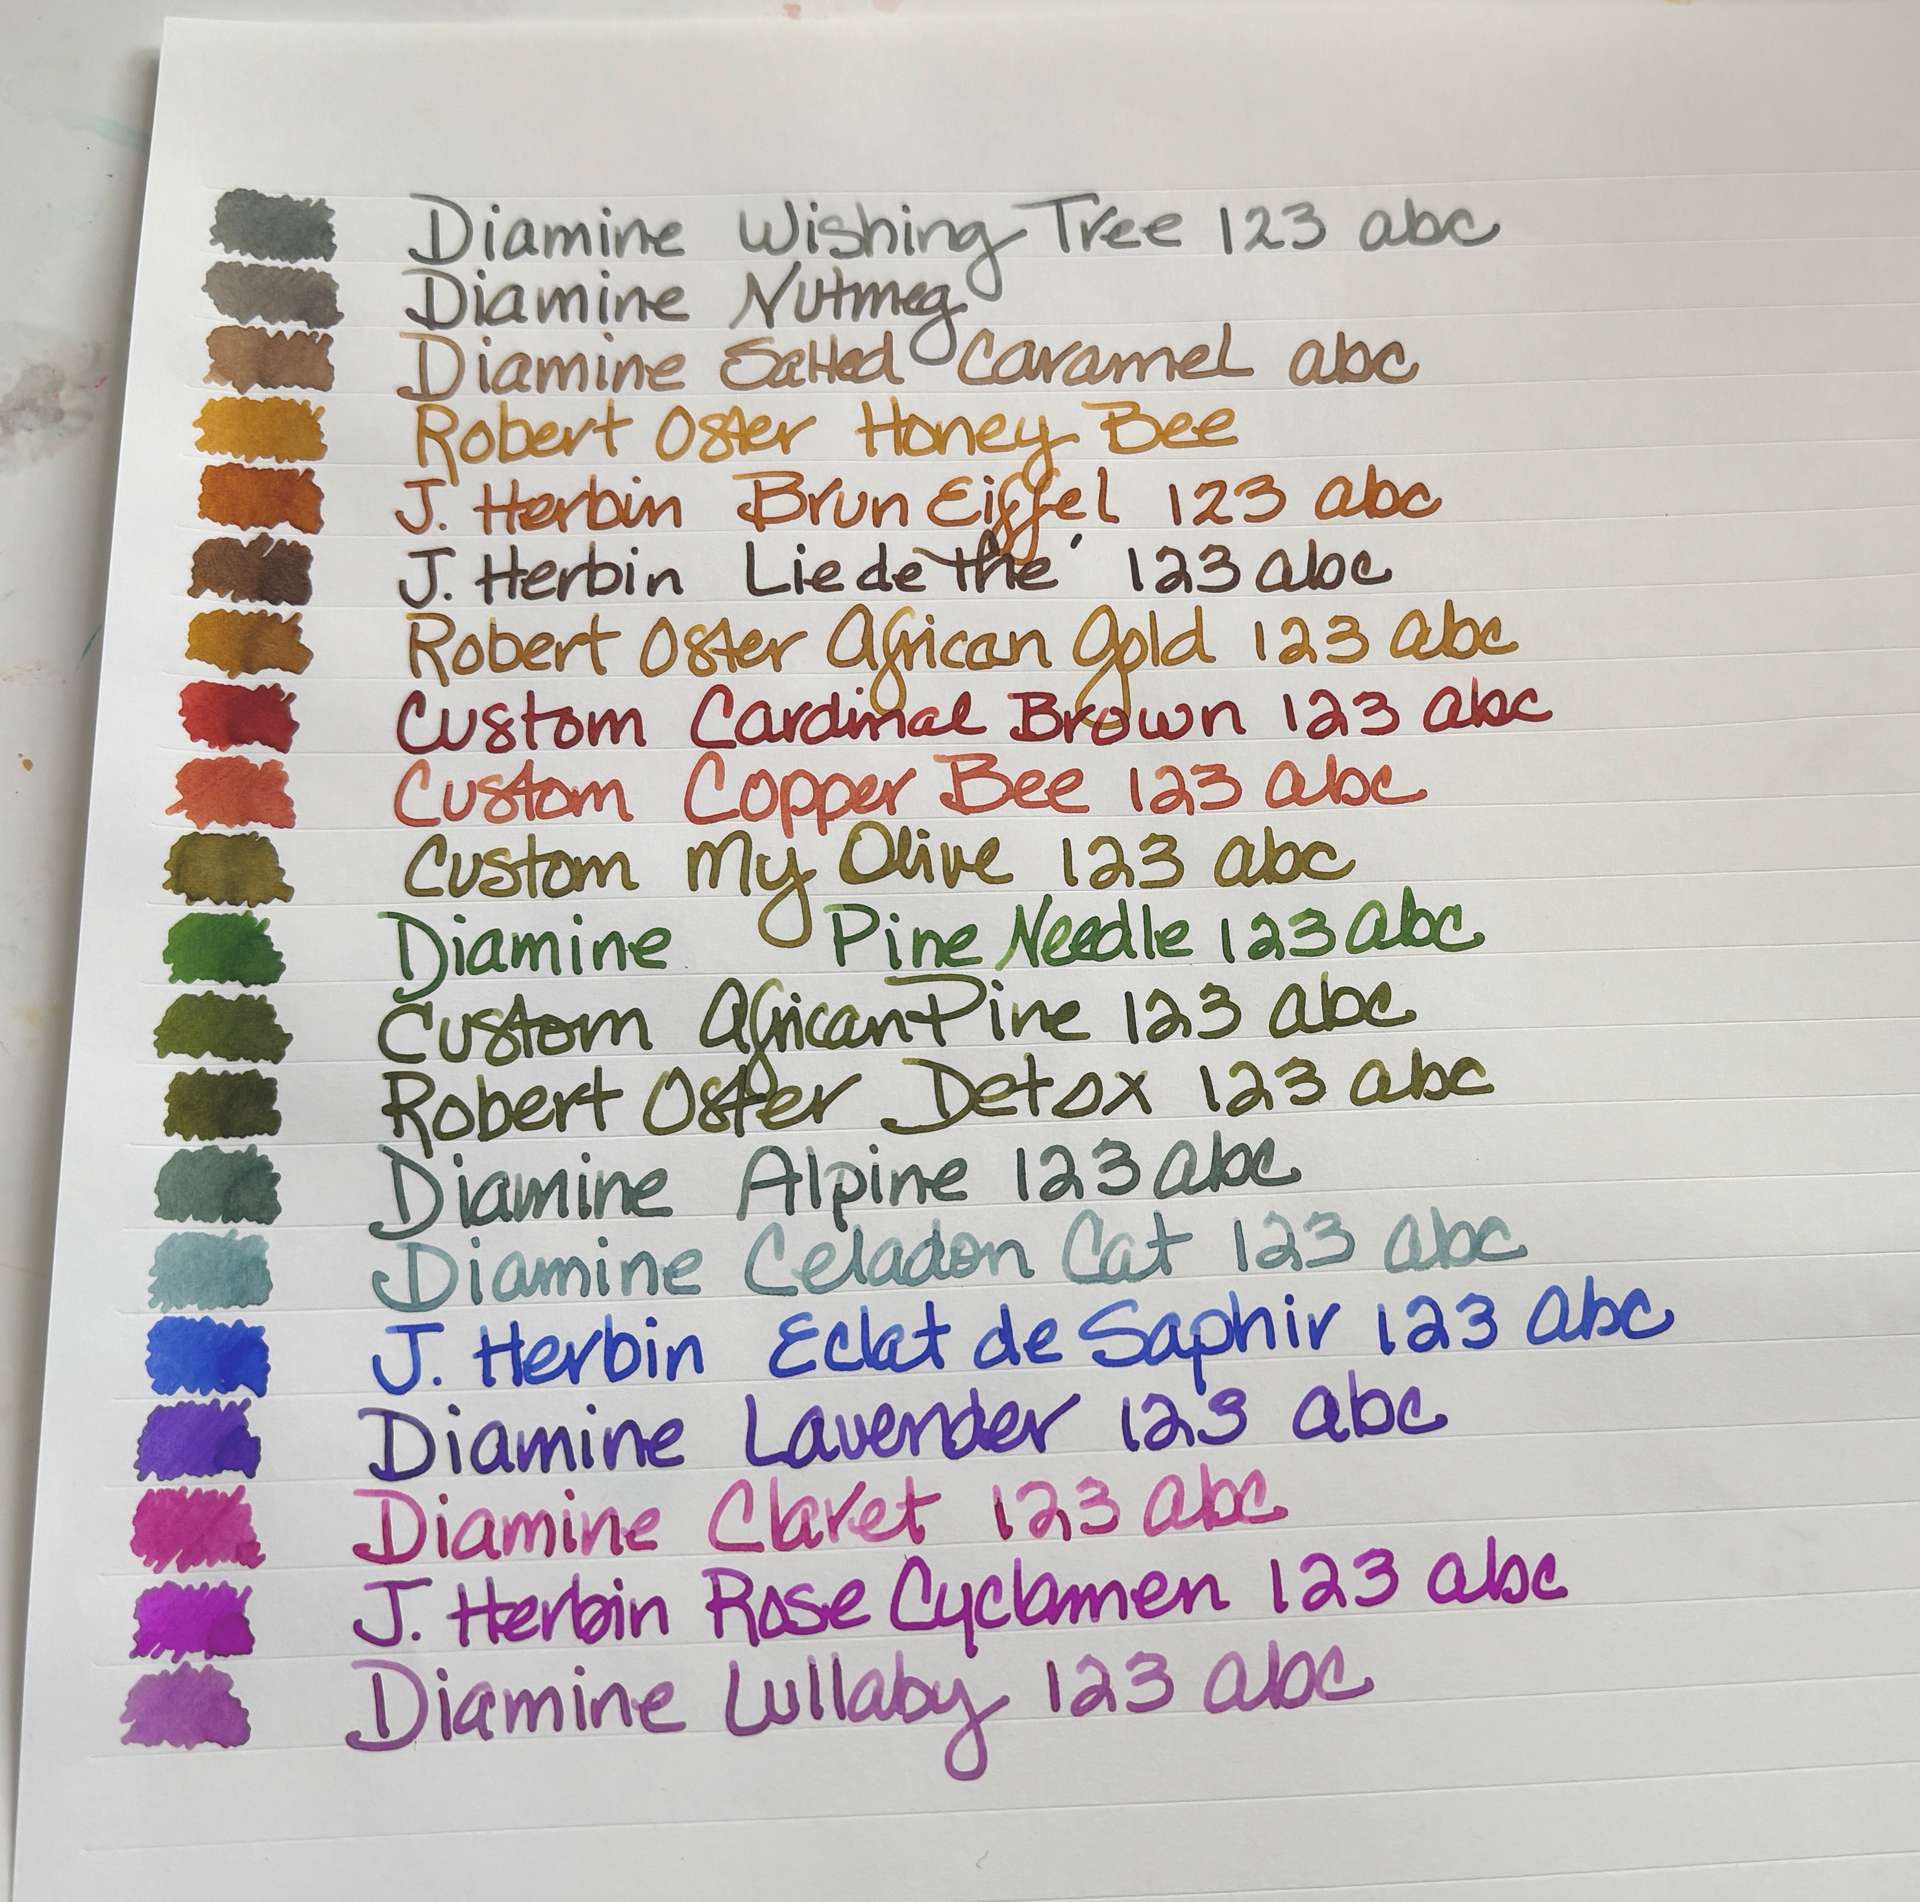 Diamine Wishing Tree 123 abc
Diamine Nutmeg
Diamine Salted Caramel abc
Robert Oster Honey Bee
J. Herbin Brun Eiffel 123 abc
J. Herbin Lie de thé 123 abc
Robert Oster African Gold 123 abc
Custom Cardinal Brown 123 abc
Custom Copper Bee 123 abc
Custom My Olive 123 abc
Diamine Pine Needle 123 abc
Custom African Pine 123 abc
Robert Oster Detox 123 abc
Diamine Alpine 123 abc
Diamine Celadon Cat 123 abc
J. Herbin Eclat de Saphir 123 abc
Diamine Lavender 123 abc
Diamine Claret 123 abc
J. Herbin Rose Cyclamen 123 abc
Diamine Lullaby 123 abc